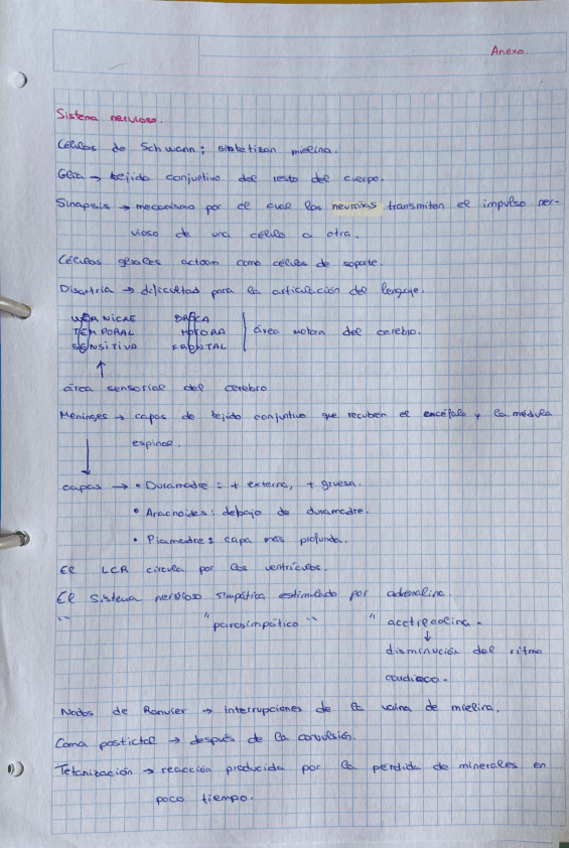 Anexo
Sistema nervioso.
Células de Schwann: sintetizan mielina.
Glia → tejido conjuntivo del resto del cuerpo.
Sinapsis → mecanismo por el cual las neuronas transmiten el impulso ner-
vioso de una célula a otra.
Células gliales actúan como células de soporte.
Disartria → dificultad para la articulación del lenguaje.
WERNICKE BROCA
TEMPORAL MOTORA área motora del cerebro.
SENSITIVA FRONTAL
↑
área sensorial del cerebro
Meninges → capas de tejido conjuntivo que recubren el encéfalo y la médula
espinal.
capas → • Duramadre: + externa, + gruesa.
• Aracnoides: debajo de duramadre.
• Piamadre: capa más profunda.
El LCR circula por los ventrículos.
El sistema nervioso simpático estimulado por adrenalina.
" " parasimpático " " acetilcolina.
↓
disminución del ritmo
cardiaco.
Nodos de Ranvier → interrupciones de la vaina de mielina.
Coma postictal → después de la convulsión.
Tetanización → reacción producida por la perdida de minerales en
poco tiempo.